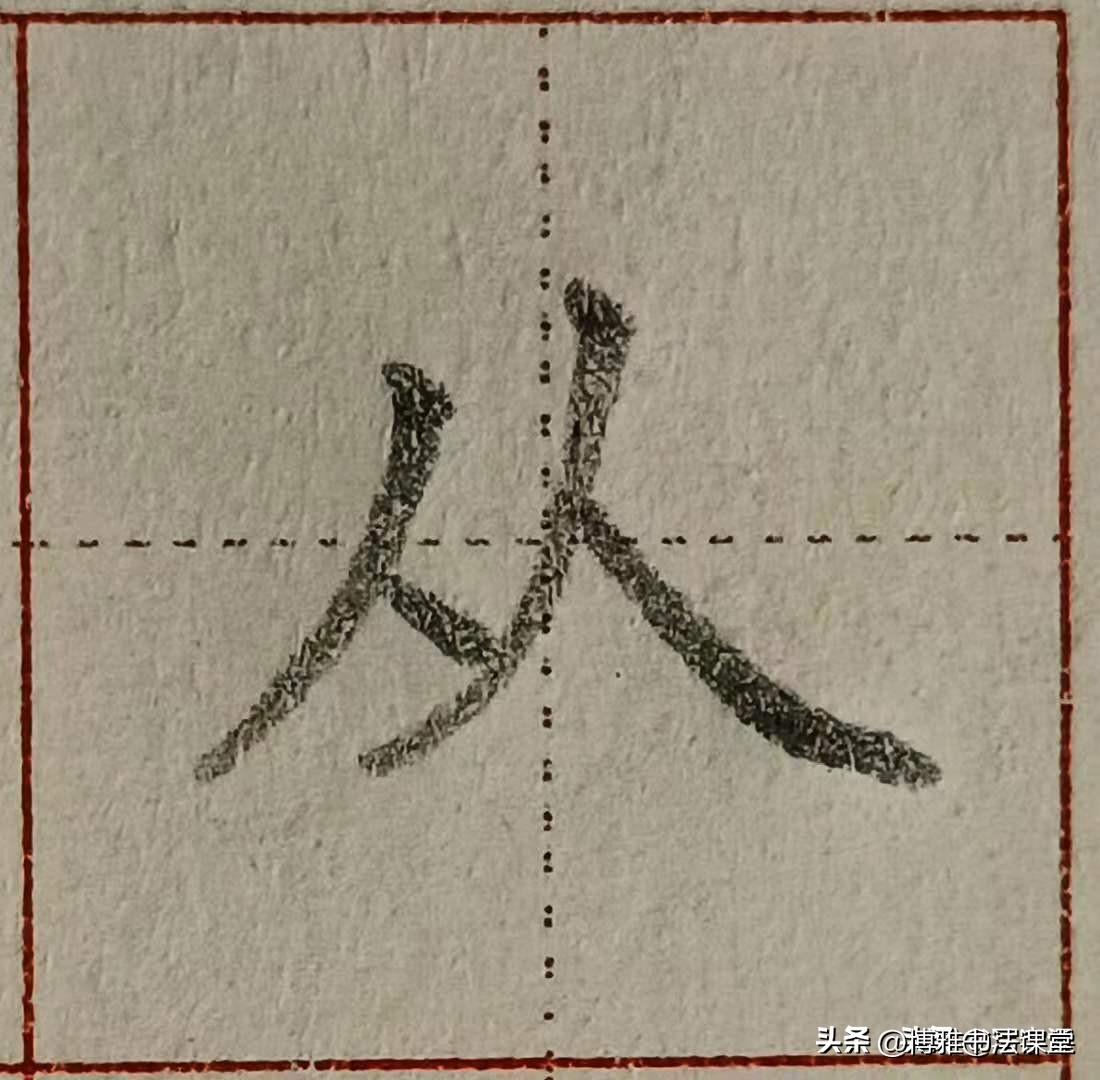 从
头条 @博雅书法课堂